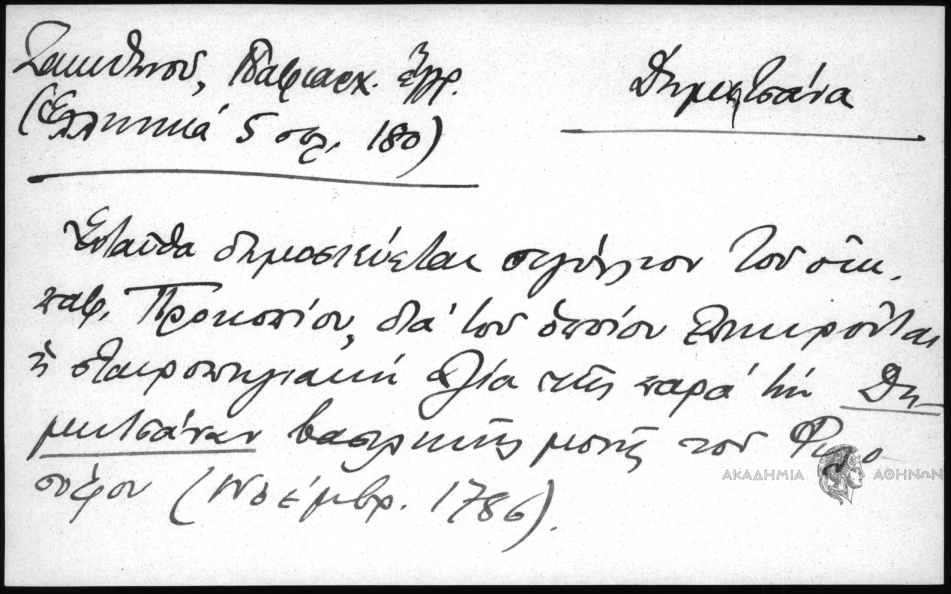 Ζακυθηνοῦ, Πατριαρχ. ἔγγρ.
(Ἑλληνικά 5 σελ. 180)
Δημητσάνα
Ἐνταῦθα δημοσιεύεται σιγίλλιον τοῦ οἰκ.
πατρ. Προκοπίου, διὰ τοῦ ὁποίου ἐπικυροῦται
ἡ σταυροπηγιακὴ ἀξία τῆς παρὰ τὴν Δη-
μητσάναν βασιλικῆς μονῆς τοῦ Φιλο-
σόφου (Νοέμβρ. 1786).
ΑΚΑΔΗΜΙΑ ΑΘΗΝΩΝ